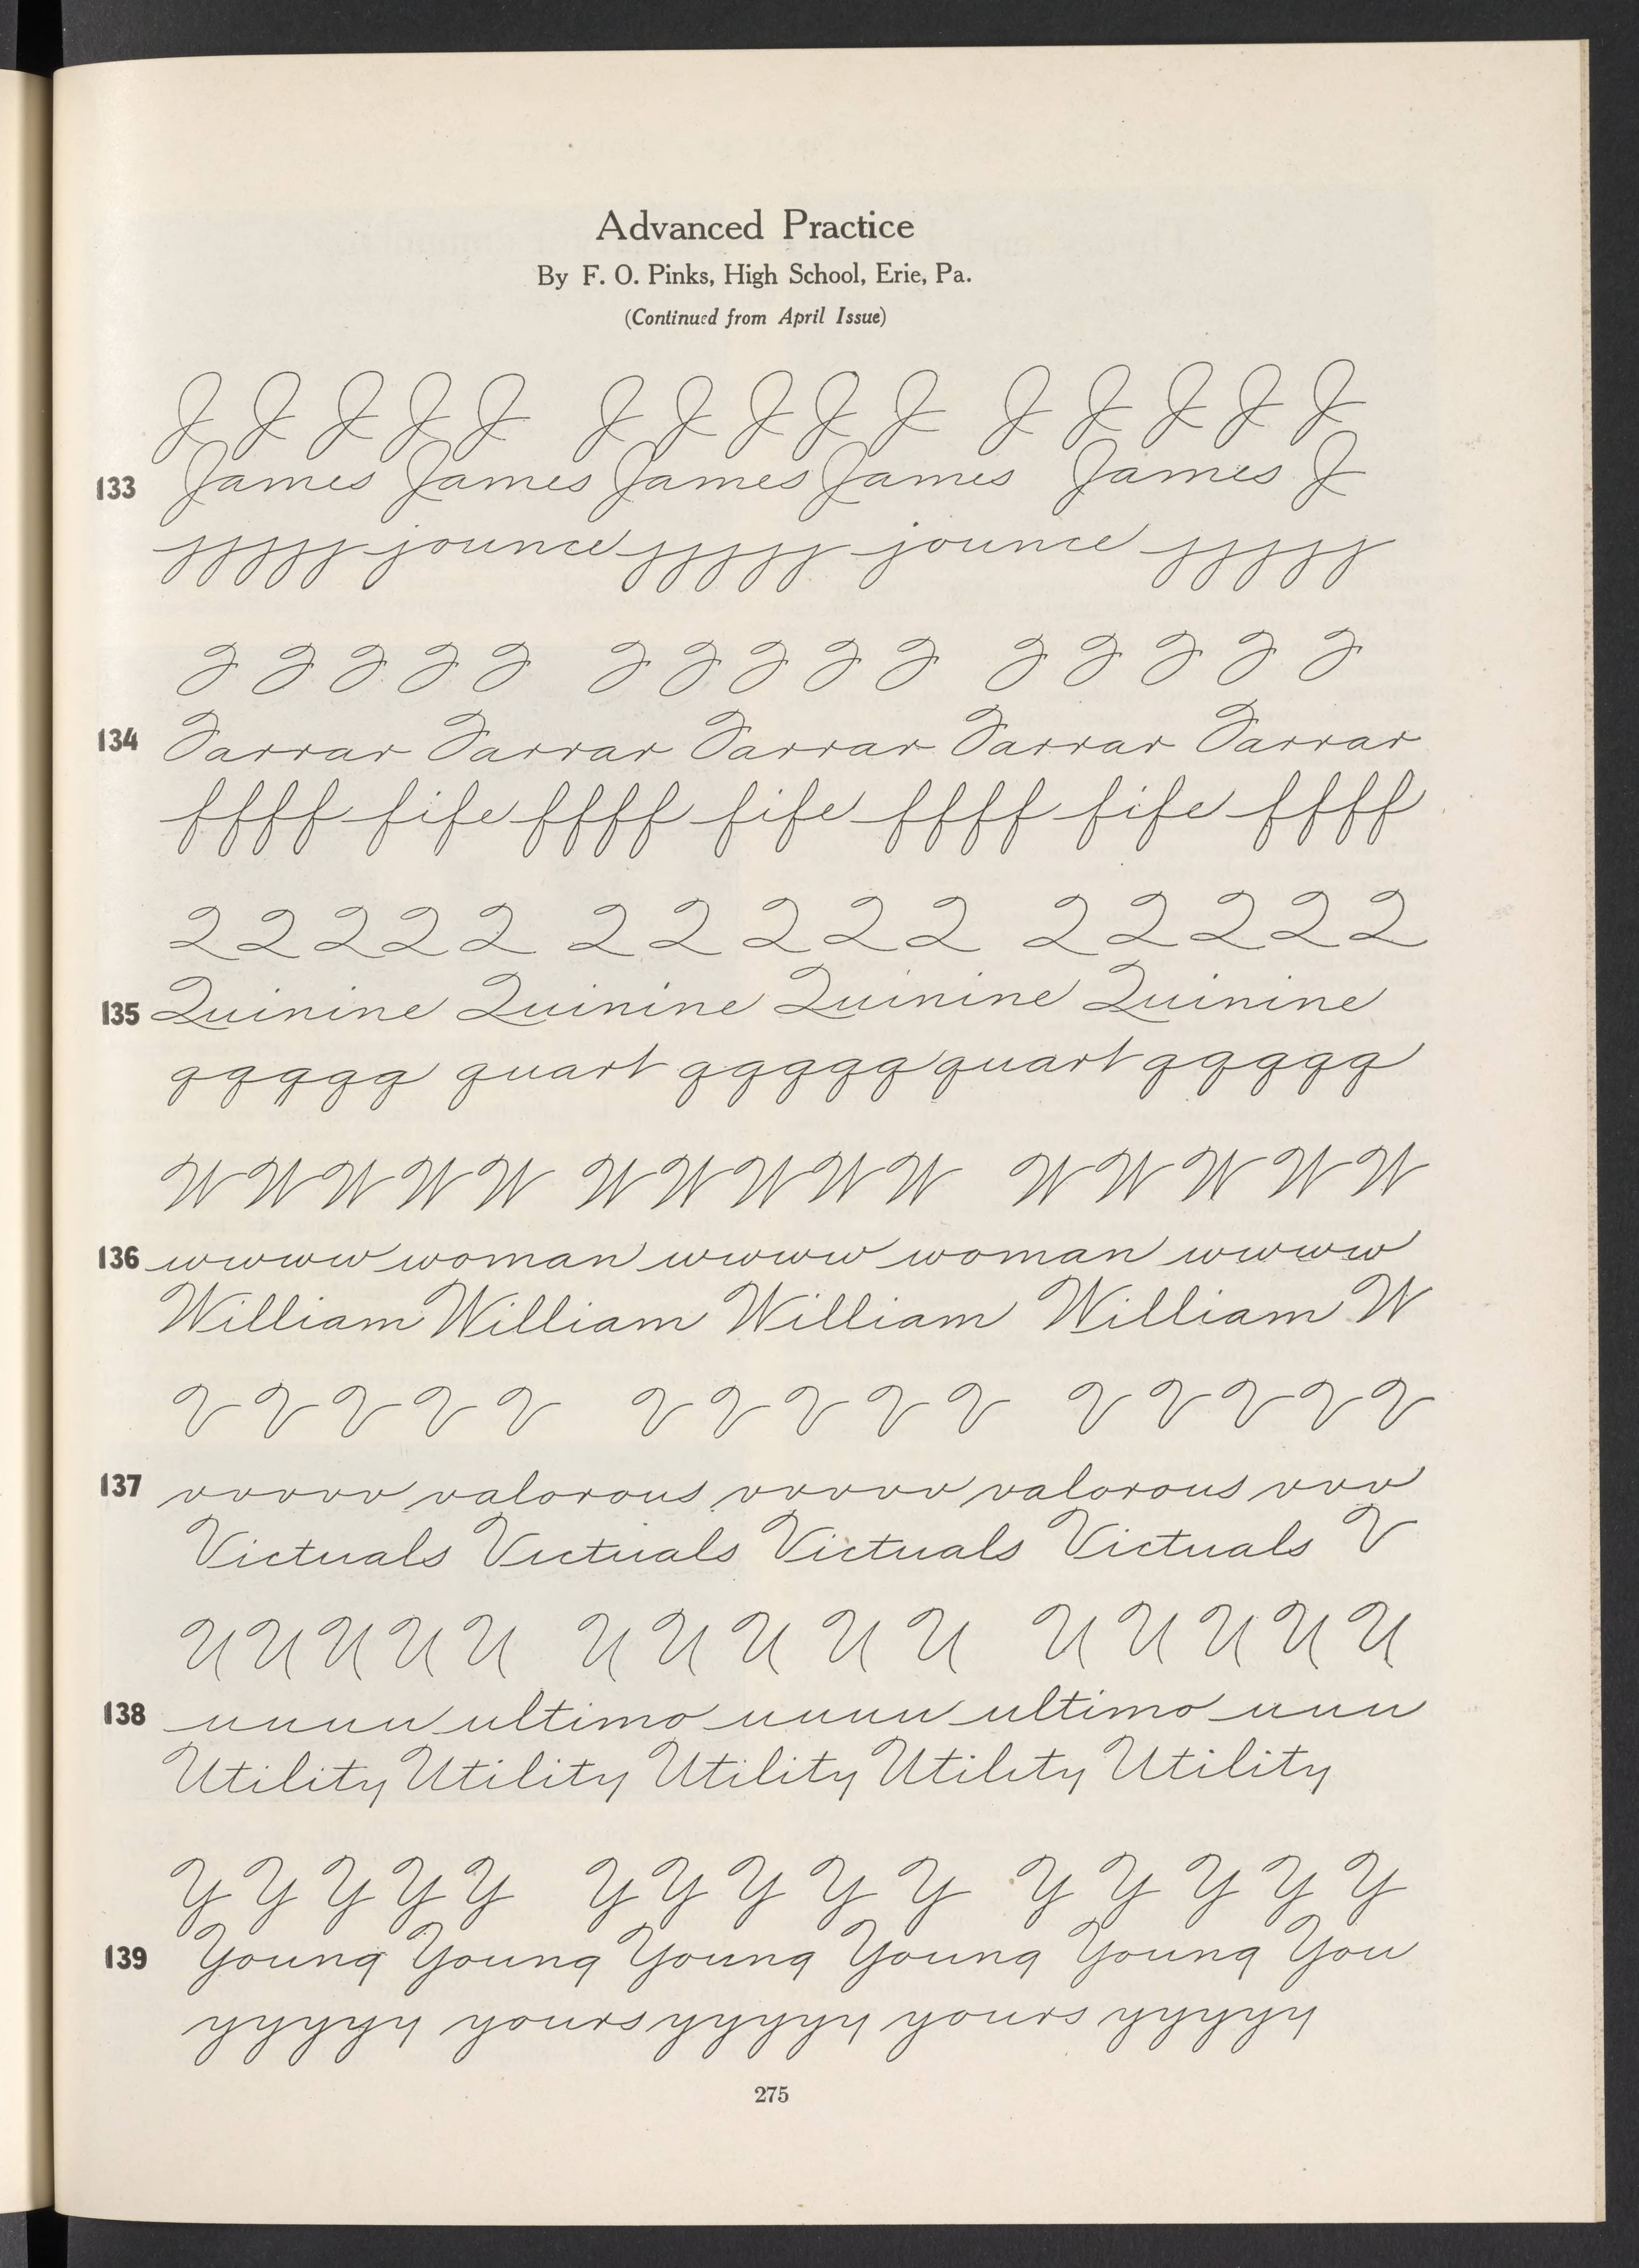 Advanced Practice
By F. O. Pinks, High School, Erie, Pa.
(Continued from April Issue)
J J J J J J J J J J J J J J J
133 James James James James James J
jjjjj jounce jjjjj jounce jjjjj
F F F F F F F F F F F F F F F
134 Farrar Farrar Farrar Farrar Farrar
ffff fife ffff fife ffff fife ffff
Q Q Q Q Q Q Q Q Q Q Q Q Q Q Q
135 Quinine Quinine Quinine Quinine
qqqqq quart qqqqq quart qqqqq
W W W W W W W W W W W W W W W
136 wwww woman wwww woman wwww
William William William William W
V V V V V V V V V V V V V V V
137 vvvvv valorous vvvvv valorous vvv
Victuals Victuals Victuals Victuals V
U U U U U U U U U U U U U U U
138 uuuu ultimo uuuu ultimo uuu
Utility Utility Utility Utility Utility
Y Y Y Y Y Y Y Y Y Y Y Y Y Y Y
139 Young Young Young Young Young You
yyyyy yours yyyyy yours yyyyy
275